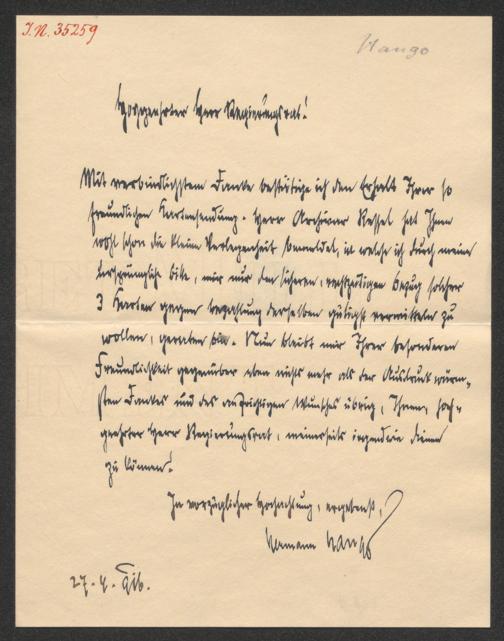 I.N. 35259
Hango
Hochgeehrter Herr Regierungsrat!
Mit verbindlichstem Danke bestätige ich den Erhalt Ihrer so
freundlichen Kartensendung. Herr Archivar Ressel hat Ihnen
wohl schon die kleine Verlegenheit vermeldet, in welche ich durch meine
ursprüngliche Bitte, mir nur den sicheren, rechtzeitigen Bezug solcher
3 Karten gegen Bezahlung derselben gütigst vermitteln zu
wollen, geraten bin. Nun bleibt mir Ihrer besonderen
Freundlichkeit gegenüber eben nichts mehr als der Ausdruck wärm-
sten Dankes und des aufrichtigen Wunsches übrig, Ihnen, hoch-
geehrter Herr Regierungsrat, meinerseits irgendwie dienen
zu können!
In vorzüglicher Hochachtung, ergebenst,
Hermann Hango
27. 4.